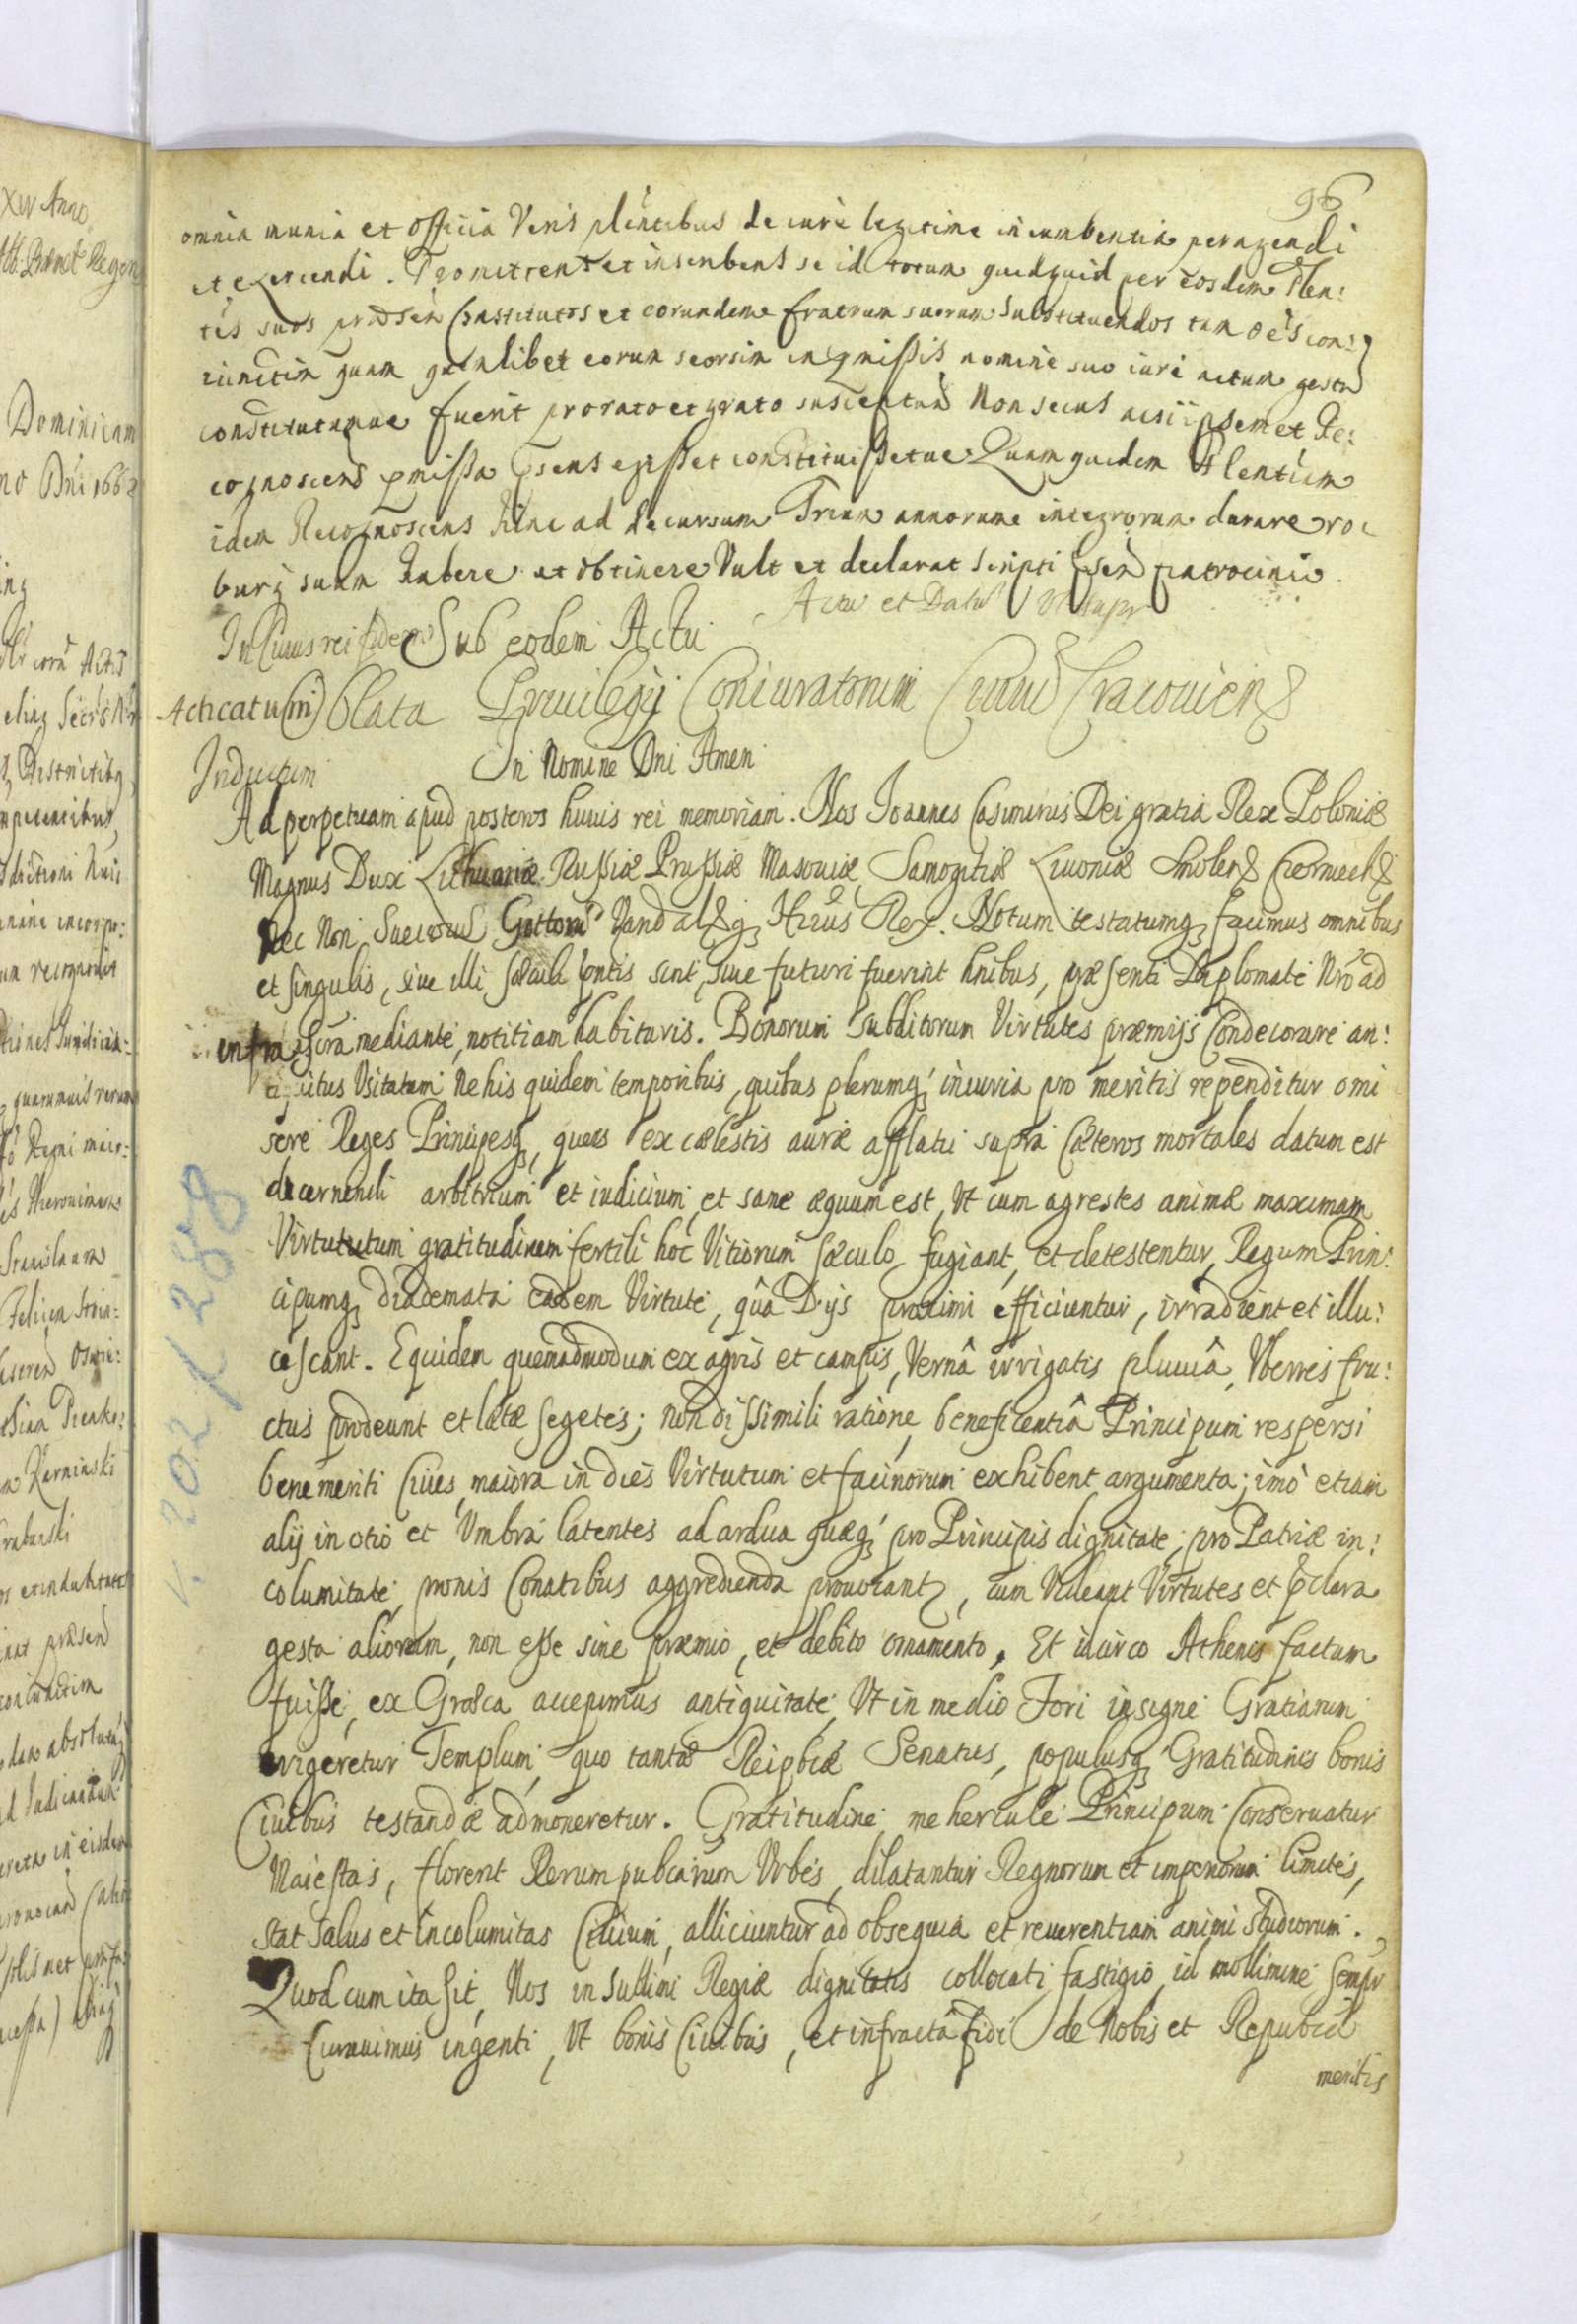 96
omnia munia et officia Veris plentibus de iure legitime incumbentia peragendi
et exercendi. Promittens et inscribens se id totum quidquid per eosdem Plen:
tes suos præsen Constitutos et eorundem fratrum suorum substituendos tam oes con:
iunctim quam quemlibet eorum seorsim in pmissis nomine suo iure actum gestu
constitutumue fuerit pro rato et grato suscepturu Non secus ac si ipsemet Re:
cognoscens pmissa psens egisset constituissetue Quam quidem Plentiam
idem Recognoscens hinc ad decursum Trium annorum integrorum durare ro
burq suum habere et obtinere Vult et declarat scripti psen patrocinio.
In Cuius rei fidem Sub eodem Actu
Actu et Datu Vt supr
Acticatu(m) Oblata Priuilegij Coniuratorum Ciuiu Cracouiens
Inductum
In Nomine Dni Amen
Ad perpetuam apud posteros huius rei memoriam. Nos Ioannes Casimirus Dei gratia Rex Poloniæ
Magnus Dux Lithuaniæ Russiæ Prussiæ Masouiæ Samogitiæ Liuoniæ Smolens Czerniech
Nec Non Suecorum Gottoru Vandalq Hrius Rex. Notum testatumq facimus omnibus
et singulis, siue illi sæculi pntis sint, siue futuri fuerint hnibus, præsenti Diplomate Nro ad
infra scra mediante, notitiam habituris. Bonorum subditorum Virtutes præmijs Condecorare an:
tiquitus Vsitatum Ne his quidem temporibus, quibus plerumq iniuria pro meritis rependitur omi
sere Reges Principesq, queis ex cælestis auræ afflatu supra Cæteros mortales datum est
decernendi arbitrium et iudicium, et sane æquum est, Vt cum agrestes animæ maximam
Virtututum gratitudinem fertili hoc Vitiorum sæculo fugiant, et detestentur, Regum Prin:
cipumq diademata eadem Virtute, quâ Dijs proximi efficiuntur, irradient et illu:
cescant. Equidem quemadmodum ex agris et campis, Vernâ irrigatis pluuiâ, Vberres fru:
ctus prodeunt et lætæ segetes; non dissimili ratione, beneficentiâ Principum respersi
benemeriti Ciues, maiora in dies Virtutum et facinorum exhibent argumenta; imò etiam
alij in otio et Vmbra latentes ad ardua quæq pro Principis dignitate, pro Patriæ in:
columitate, pronis Conatibus aggredienda prouocant, cum Videant Virtutes et pclara
gesta aliorum, non esse sine præmio, et debito ornamento. Et idcirco Athenis factum
fuisse, ex Græca accepimus antiquitate, Vt in medio Fori insigne Gratiarum
erigeretur Templum, quo tantæ Reipbcæ Senatus, populusq Gratitudinis bonis
Ciuibus testandæ admoneretur. Gratitudine mehercule Principum Conseruatur
Maiestas, florent Rerumpubcarum Vrbes, dilatantur Regnorum et imperiorum limites,
stat salus et incolumitas Ciuium, alliciuntur ad obsequia et reuerentiam animi studiorum.
Quod cum ita sit, Nos in sublimi Regiæ dignitatis collocati fastigio, id mollimine sempr
Curauimus ingenti, Vt bonis Ciuibus, et infractâ fide de Nobis et Republ
meritis
v. 202 / 288